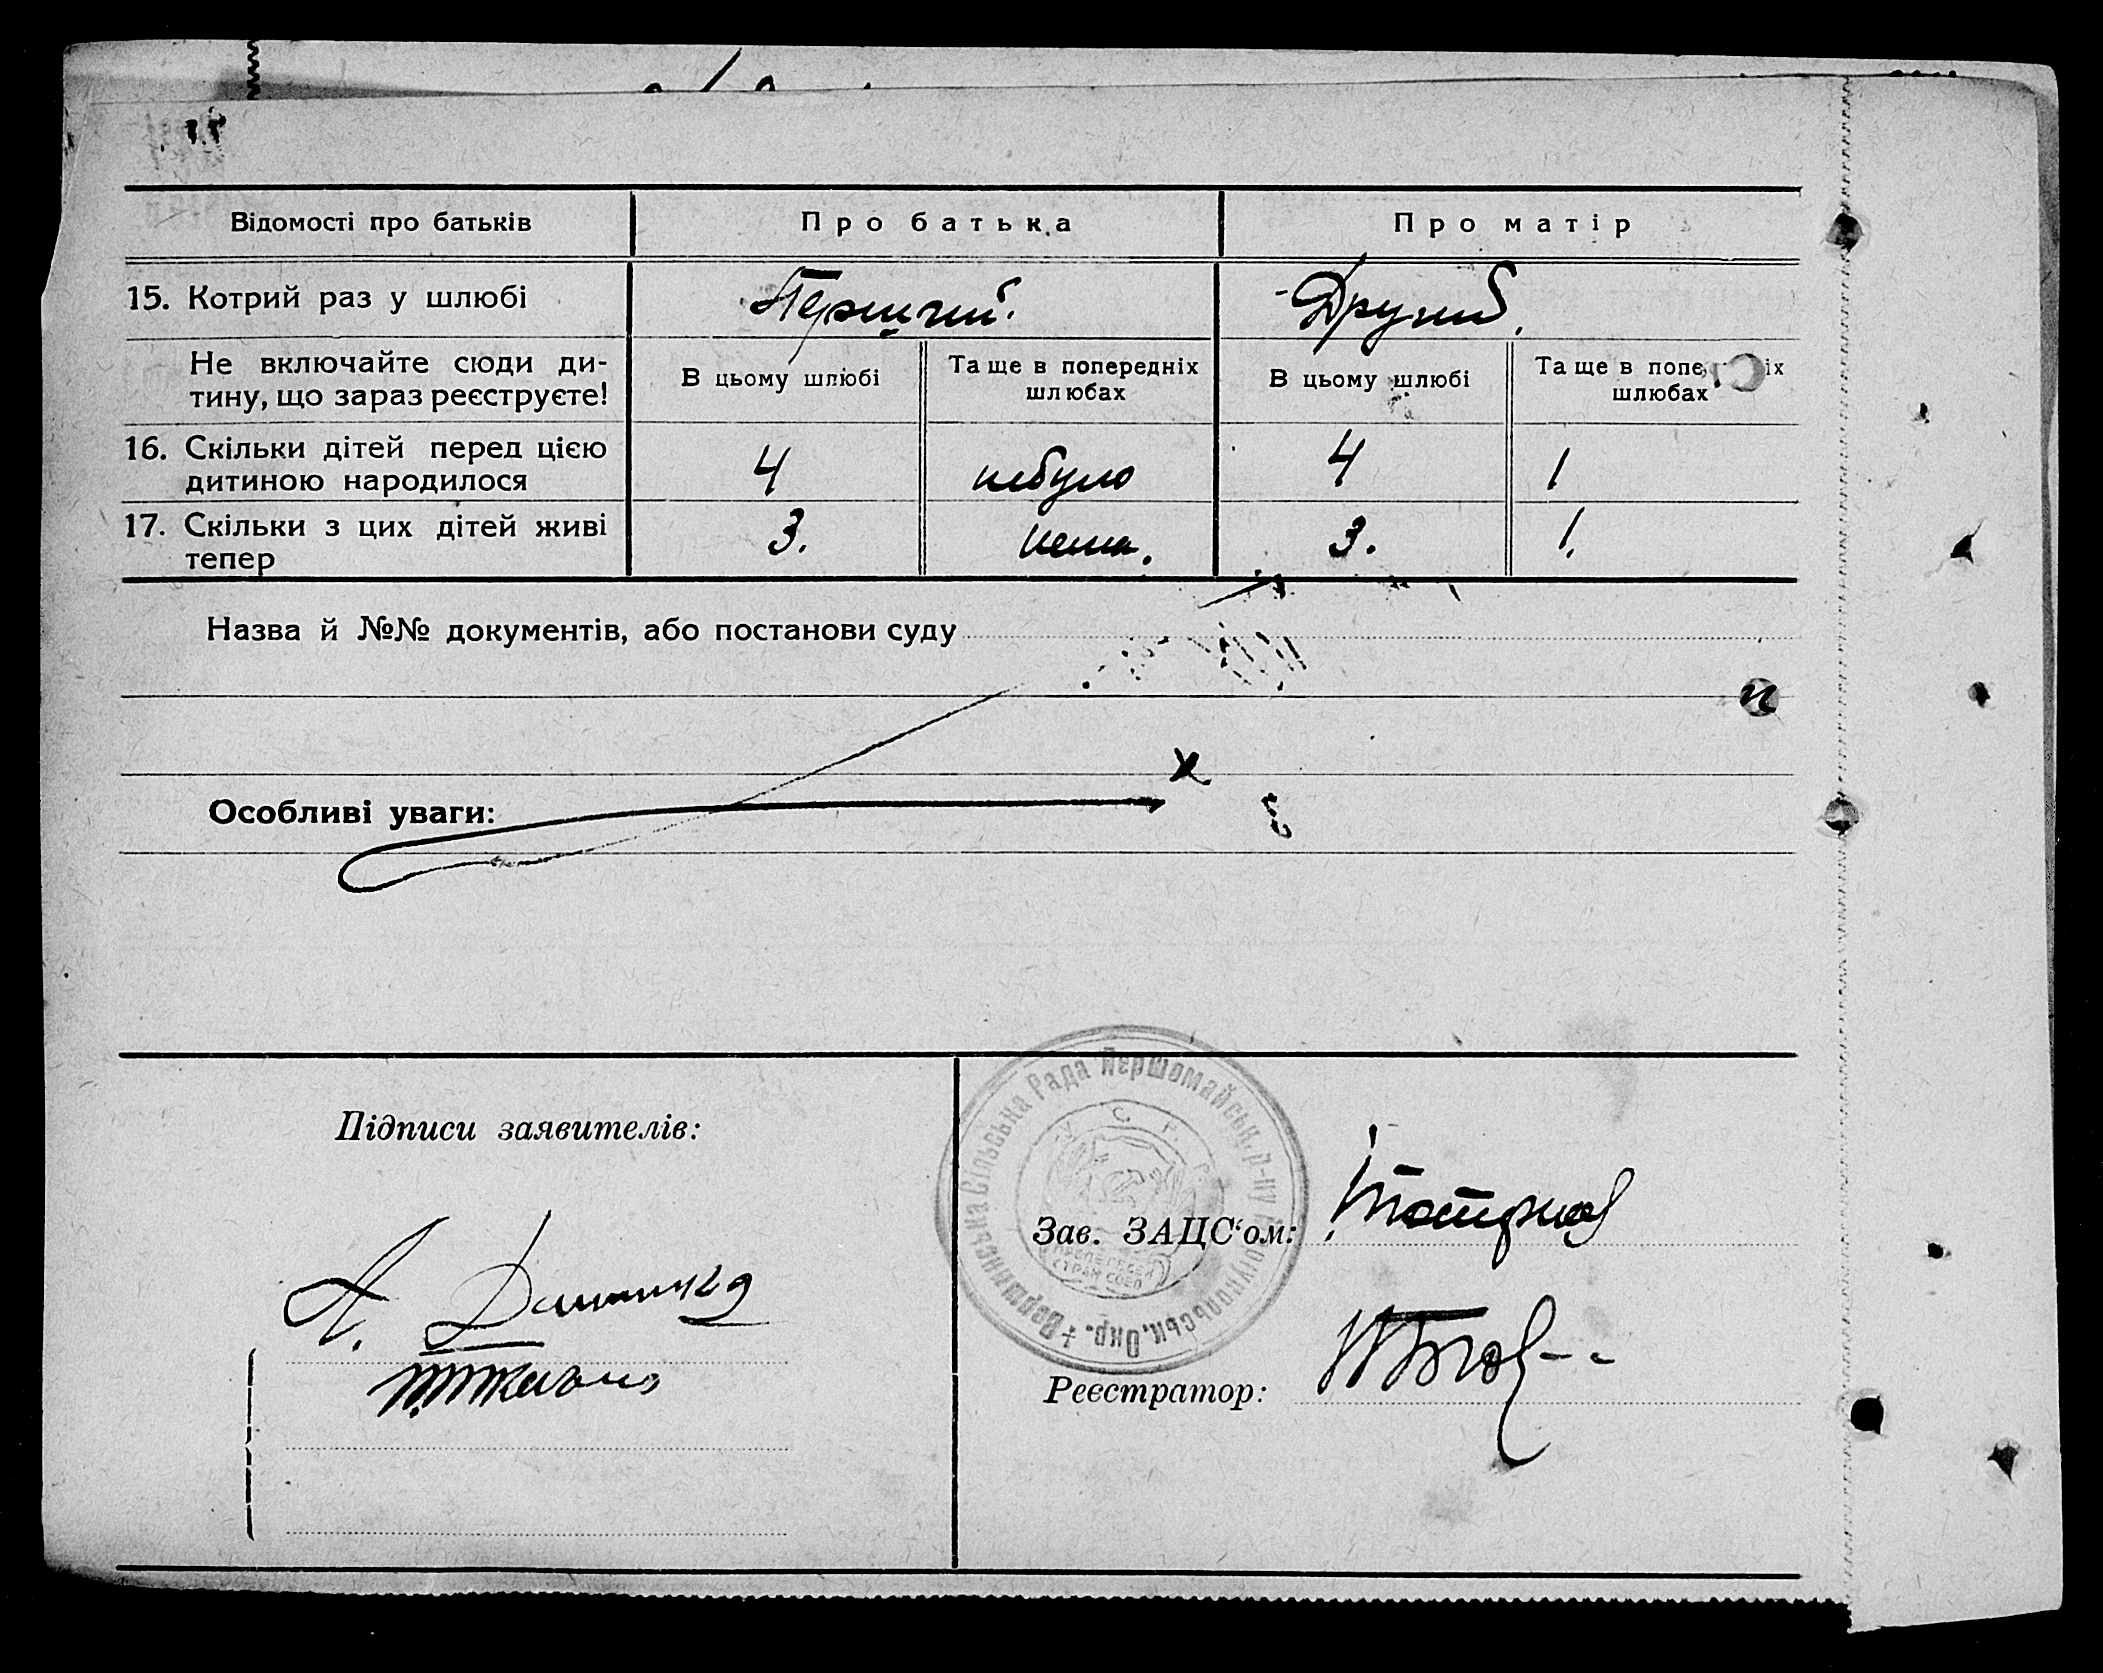 Відомості про батьків
Про батька
Про матір
15. Котрий раз у шлюбі
Перший.
Другий.
Не включайте сюди ди-
тину, що зараз реєструєте!
В цьому шлюбі
Та ще в попередніх
шлюбах
В цьому шлюбі
Та ще в попе іх
шлюбах
16. Скільки дітей перед цією
дитиною народилося
4
небуло
4
1
17. Скільки з цих дітей живі
тепер
3.
нема.
3.
1.
Назва й №№ документів, або постанови суду
Особливі уваги:
Підписи заявителів:
Сільська Рада Першомайськ. р-ну
Окр.
У С Р Р
Зав. ЗАЦС‘ом:
Реєстратор: